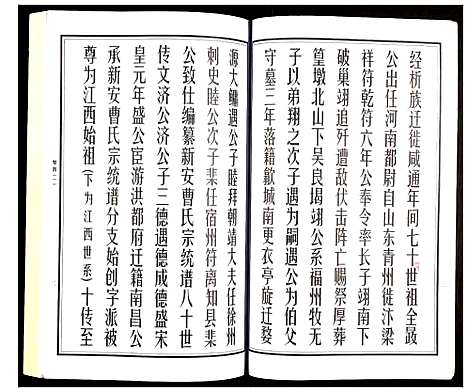 经析族迁徙咸通年间七十世祖全政
公出任河南都尉自山东青州徙汴梁
祥符乾符六年公奉令率长子翊南下
破巢翊追歼遭敌伏击阵亡赐祭厚葬
篁墩北山下吴良堨翊公系福州牧无
子以弟翔之次子遇为嗣遇公为伯父
守墓三年落籍歙城南更衣亭旋迁婺
源大鳙遇公子睦拜朝靖大夫任徐州
刺史睦公次子棐任宿州符离知县棐
公致仕编纂新安曹氏宗统谱八十世
传文济公济公子三德遇德成德盛宋
皇元年盛公臣游洪都府迁籍南昌公
承新安曹氏宗统谱分支始创字派被
尊为江西始祖(下为江西世系)十传至